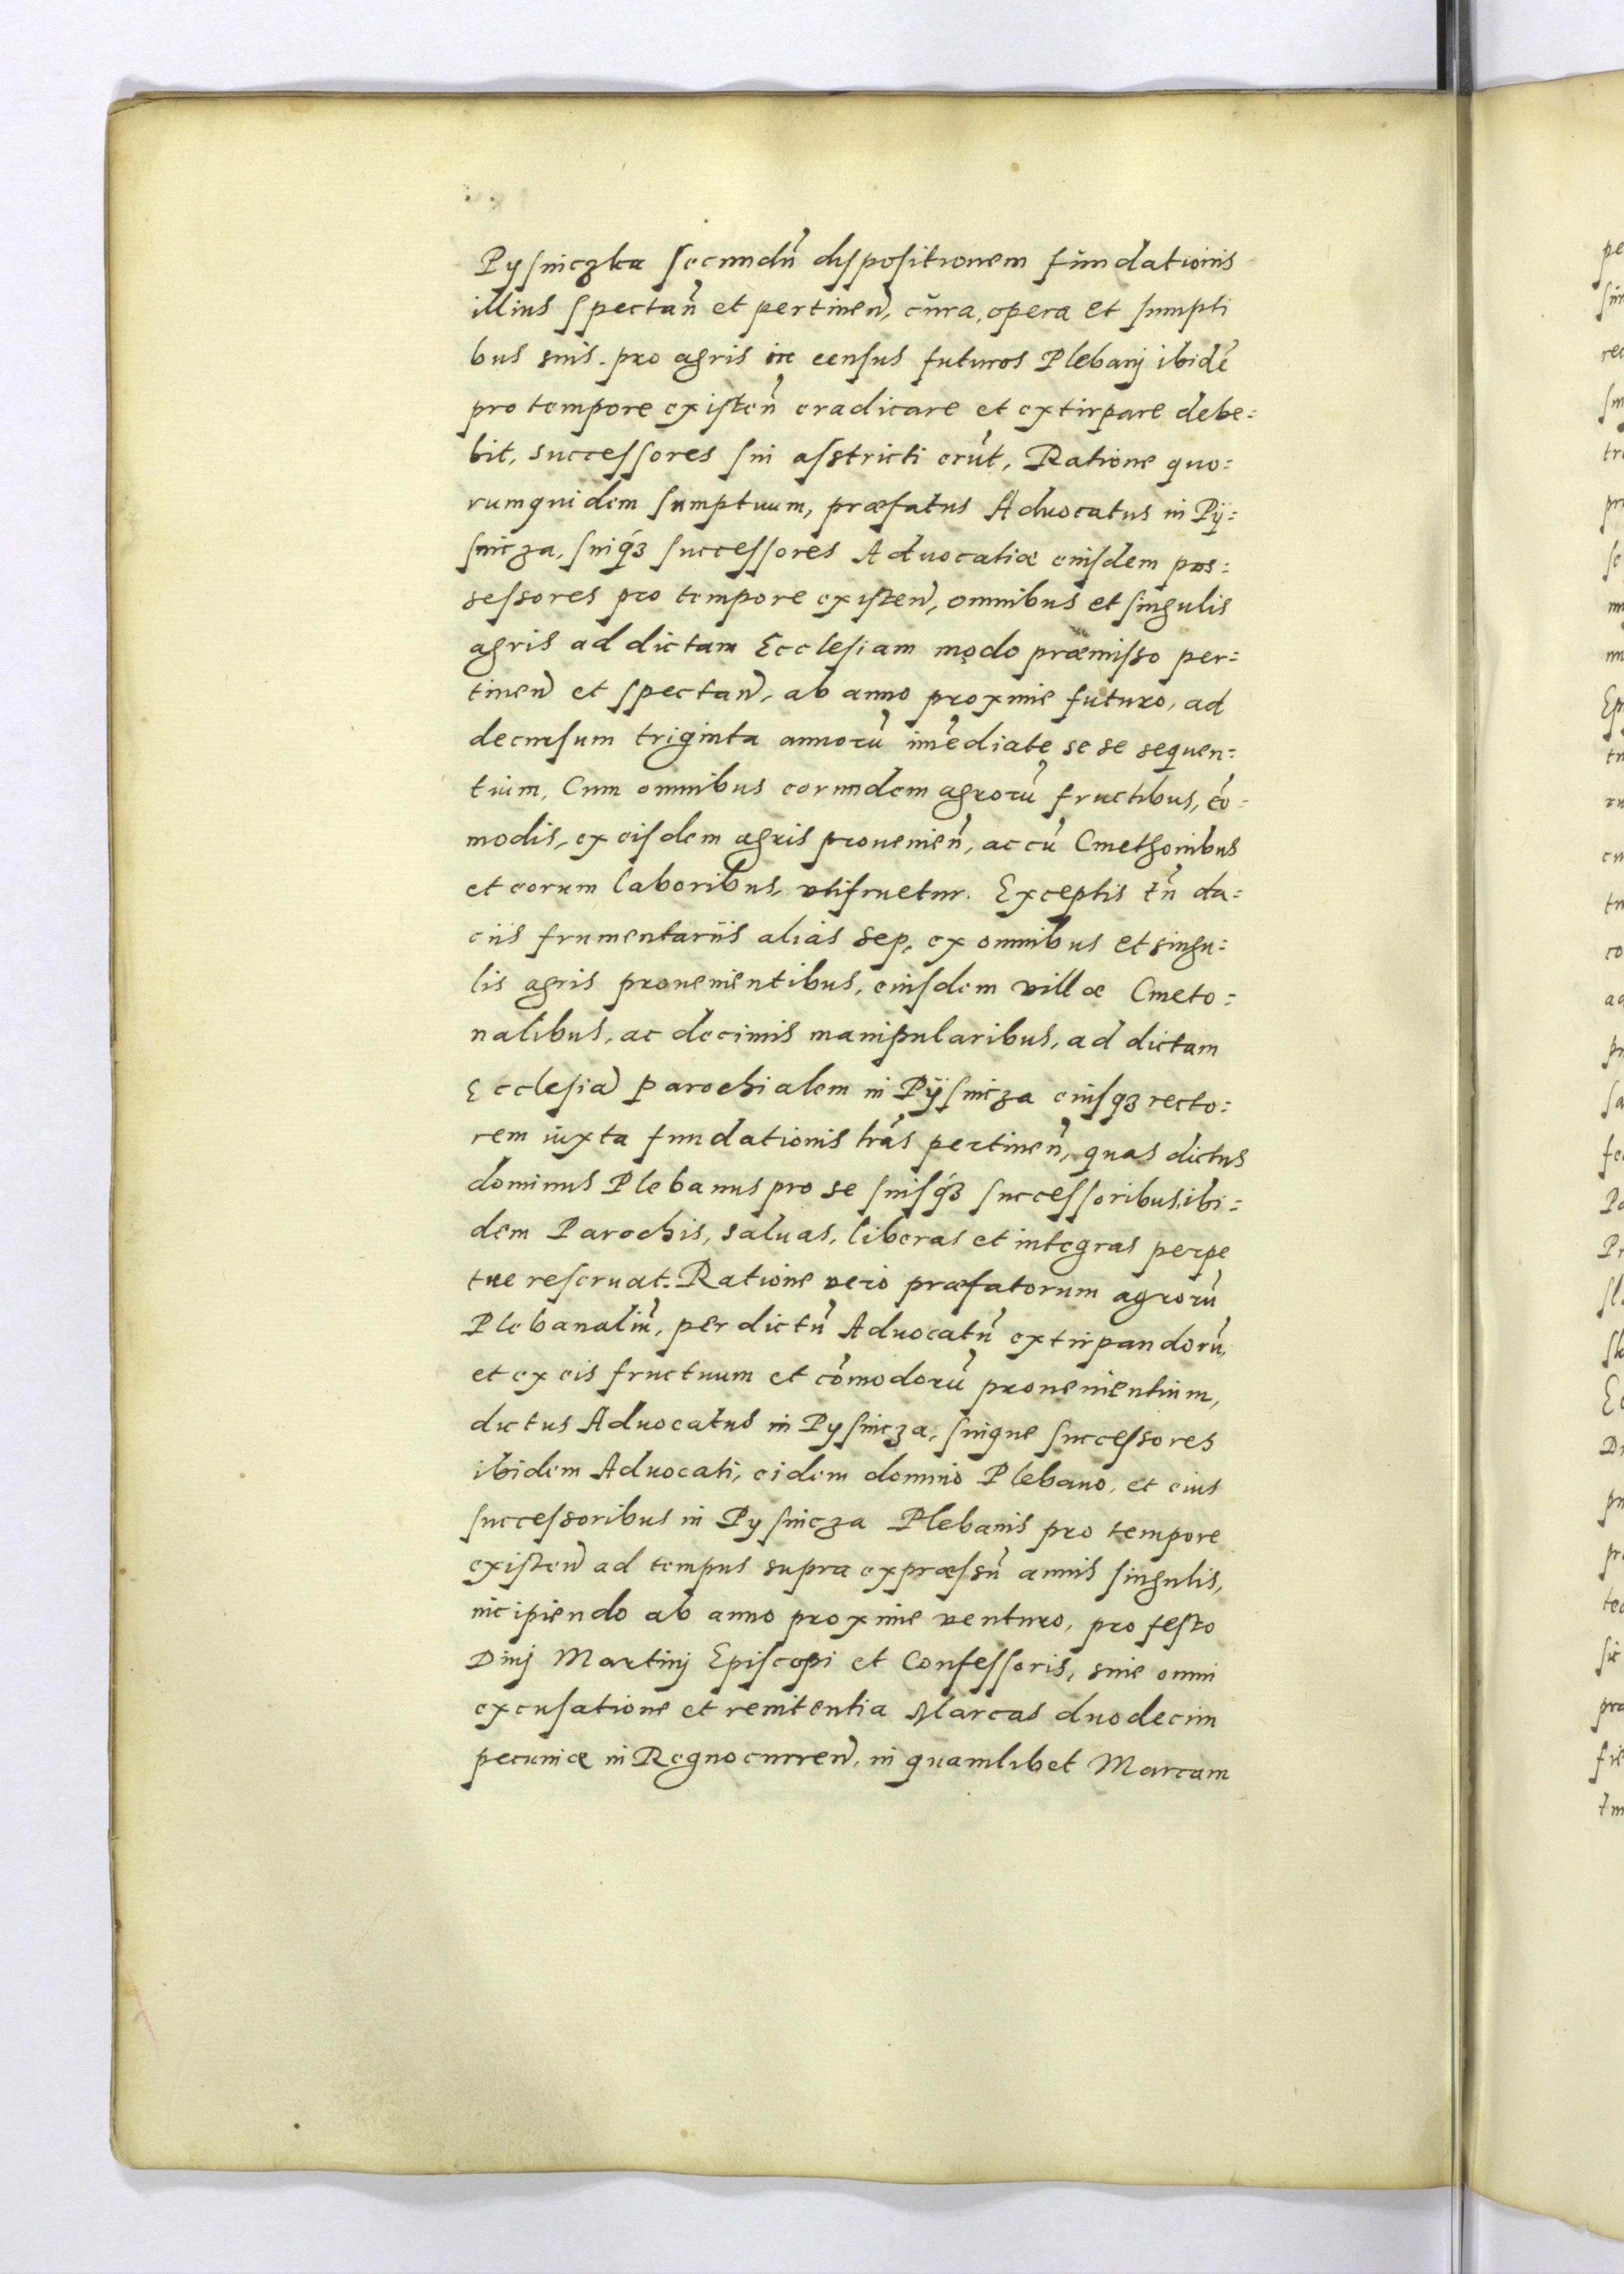 Pysniczka secundu̅ dispositionem fundationis
illius spectan̅ et pertinen̅, cura, opera et sumpti
bus suis. pro agris in census futuros Plebanj ibide̅
pro tempore existen̅ eradicare et extirpare debe=
bit, successores sui asstricti eru̅t, Ratione quo=
rumquidem sumptuum, præfatus Aduocatus in Pÿ=
snicza, suiq́ȝ successores Aduocatiæ eiusdem pos=
sessores pro tempore existen̅, omnibus et singulis
agris ad dictam Ecclesiam modo præmisso per=
tinen̅ et spectan̅, ab anno proxime futuro, ad
decursum triginta annoru̅ im̅ediate se se sequen=
tium, Cum omnibus eorundem agroru̅ fructibus, co̅=
modis, ex eisdem agris prouenien̅, ac cu̅ Cmethonibus
et eorum laboribus, vtifruetur. Exceptis tn̅ da=
ciis frumentariis alias Sep, ex omnibus et singu=
lis agris prouenientibus, eiusdem villæ Cmeto=
nalibus, ac decimis manipularibus, ad dictam
Ecclesia̅ parochialem in Pÿsnicza eiusqȝ recto=
rem iuxta fundationis lr̅as pertinen̅, quas dictus
dominus Plebanus pro se suisq́ȝ successoribus, ibi=
dem Parochis, saluas, liberas et integras perpe
tue reseruat. Ratione vero præfatorum agroru̅
Plebanaliu̅, per dictu̅ Aduocatu̅ extirpandoru̅,
et ex eis fructuum et co̅modoru̅ prouenientium,
dictus Aduocatus in Pysnicza, suique successores
ibidem Aduocati, eidem domino Plebano, et eius
successoribus in Pysnicza Plebanis pro tempore
existen̅ ad tempus supra expræssu̅ annis singulis,
incipiendo ab anno proxime venturo, pro festo
Diuj Martinj Episcopi et Confessoris, sine omni
excusatione et renitentia Marcas duodecim
pecuniæ in Regno curren̅, in quamlibet Marcam